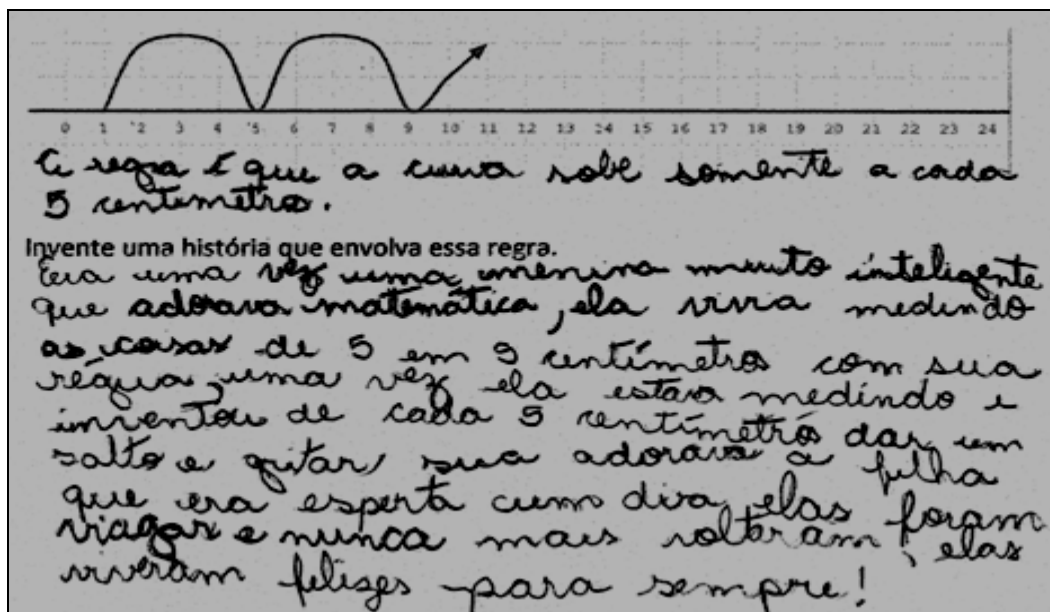 0 1 2 3 4 5 6 7 8 9 10 11 12 13 14 15 16 17 18 19 20 21 22 23 24
A regra é que a curva sobe somente a cada
5 centimetros.
Invente uma história que envolva essa regra.
Era uma vez uma menina muito inteligente
que adorava matemática, ela vivia medindo
as coisas de 5 em 5 centímetros com sua
régua, uma vez ela estava medindo e
inventou de cada 5 centímetros dar um
salto e gritar, sua adorava a filha
que era esperta cum dira elas foram
viagar e nunca mais voltaram, elas
viveram felizes para sempre!